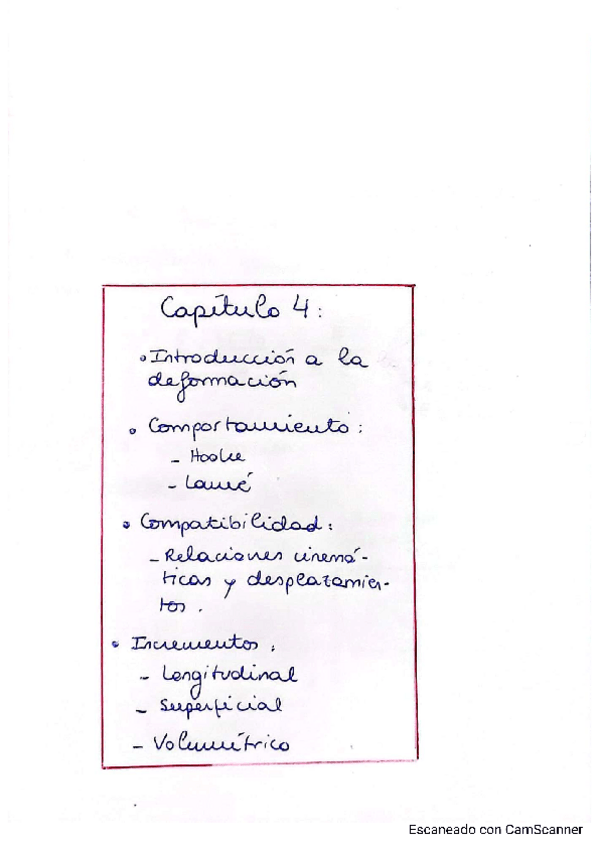 Capítulo 4:
• Introducción a la
deformación
• Comportamiento:
- Hooke
- Lamé
• Compatibilidad:
- Relaciones cinemá-
ticas y desplazamien-
tos.
• Incrementos:
- Longitudinal
- Superficial
- Volumétrico
Escaneado con CamScanner